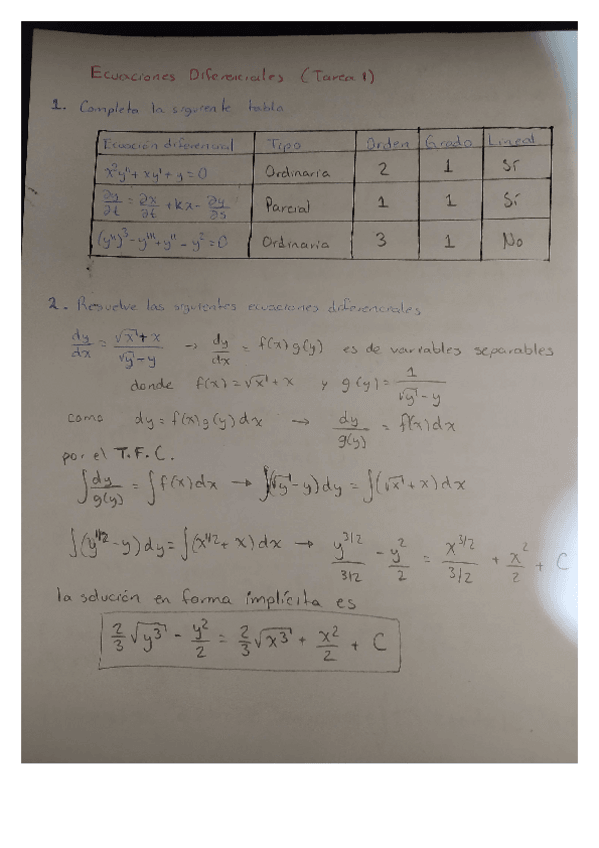 Ecuaciones Diferenciales (Tarea 1)
1. Completa la siguiente tabla
Ecuación diferencial Tipo Orden Grado Lineal
x²y'' + xy' + y = 0 Ordinaria 2 1 Sí
∂y/∂t = ∂x/∂t + kx - ∂y/∂s Parcial 1 1 Sí
(y'')³ - y''' + y'' - y² = 0 Ordinaria 3 1 No
2. Resuelve las siguientes ecuaciones diferenciales
dy/dx = (√x + x)/(√y - y) → dy/dx = f(x)g(y) es de variables separables
donde f(x) = √x + x y g(y) = 1/(√y - y)
como dy = f(x)g(y)dx → dy/g(y) = f(x)dx
por el T.F.C.
∫dy/g(y) = ∫f(x)dx → ∫(√y - y)dy = ∫(√x + x)dx
∫(y^(1/2) - y)dy = ∫(x^(1/2) + x)dx → y^(3/2)/(3/2) - y²/2 = x^(3/2)/(3/2) + x²/2 + C
la solución en forma implícita es
2/3 √y³ - y²/2 = 2/3 √x³ + x²/2 + C